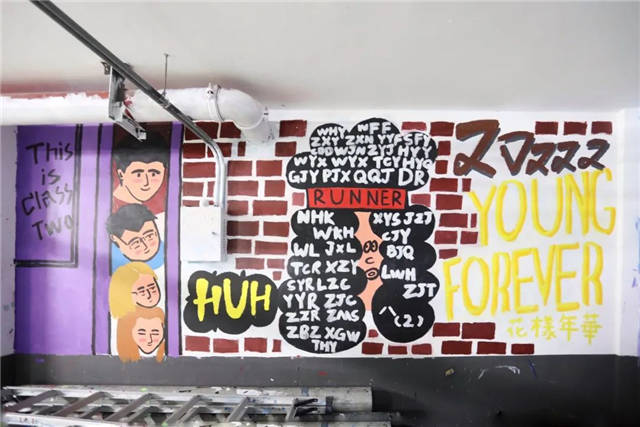 This
is
Class
Two
HUH
WHY WFF
ZXY ZXN YYFSFY
WJN ZYJ HYY
WYX WYX TCY HYQ
GJY PTX QQJ DR
RUNNER
NHK
WKH
WL JXL
TCR XZY
SYR LZC
YYR ZJC
ZZR ZMS
ZBZ XGW
THY
XYS JZJ
CJY
BJQ
LWH
ZJT
八(2)
YOUNG
FOREVER
花樣年華